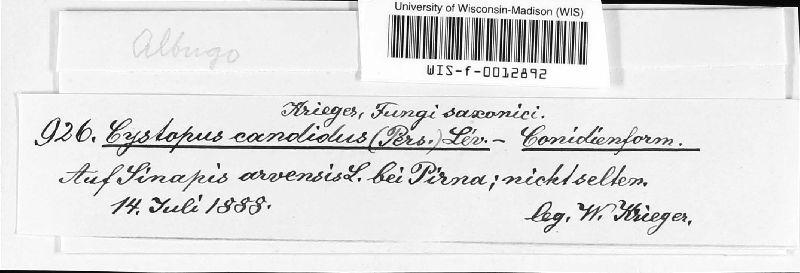 University of Wisconsin-Madison (WIS)
WIS-f-0012892
Albugo
Krieger, Fungi saxonici.
926. Cystopus candidus (Pers.) Lév. – Conidienform.
Auf Sinapis arvensis L. bei Pirna; nicht selten.
14. Juli 1888. leg. W. Krieger.